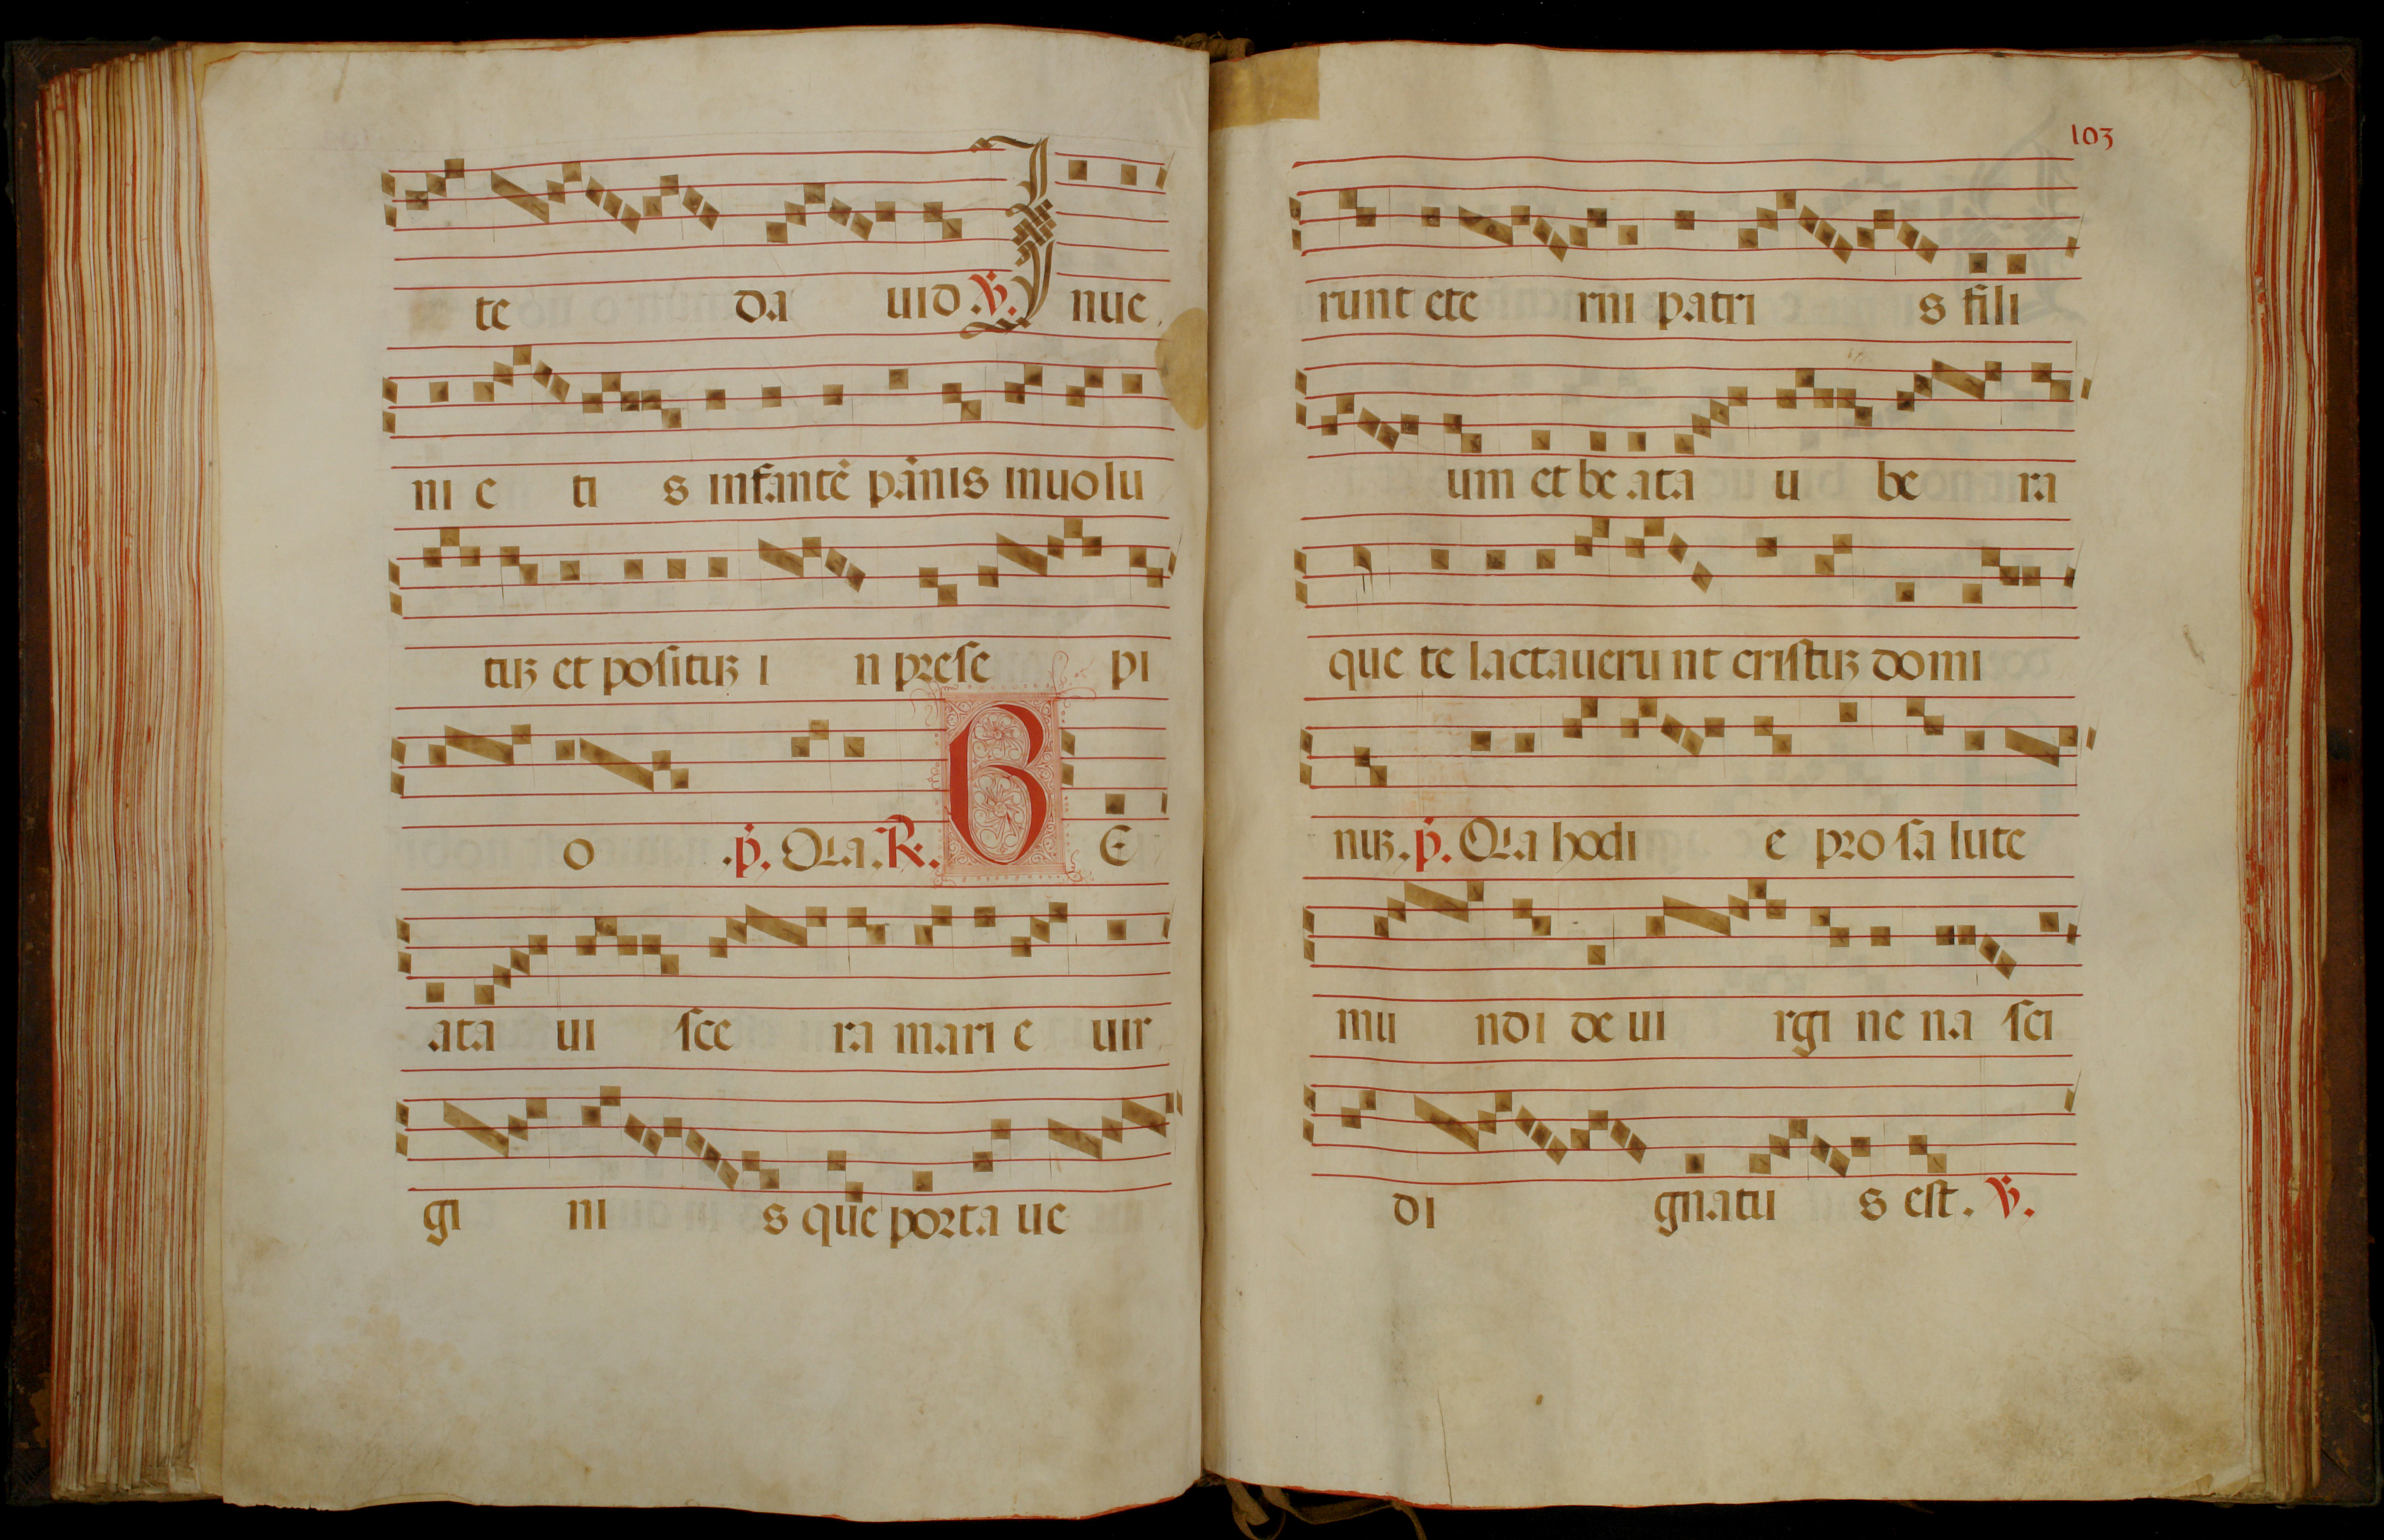 te da uid .V. I nue
ni e ti s infantē pānis inuolu
tuꝫ et poſituꝫ i n preſe pi
o .p̄. Qia .R. B E
ata ui ſce ra mari e uir
gi ni s que porta ue
103
runt ete rni patri s fili
um et be ata u be ra
que te lactaueru nt criſtuꝫ domi
nuꝫ .p̄. Qia hodi e pro ſa lute
mu ndi de ui rgi ne na ſci
di gnatu s eſt. V.